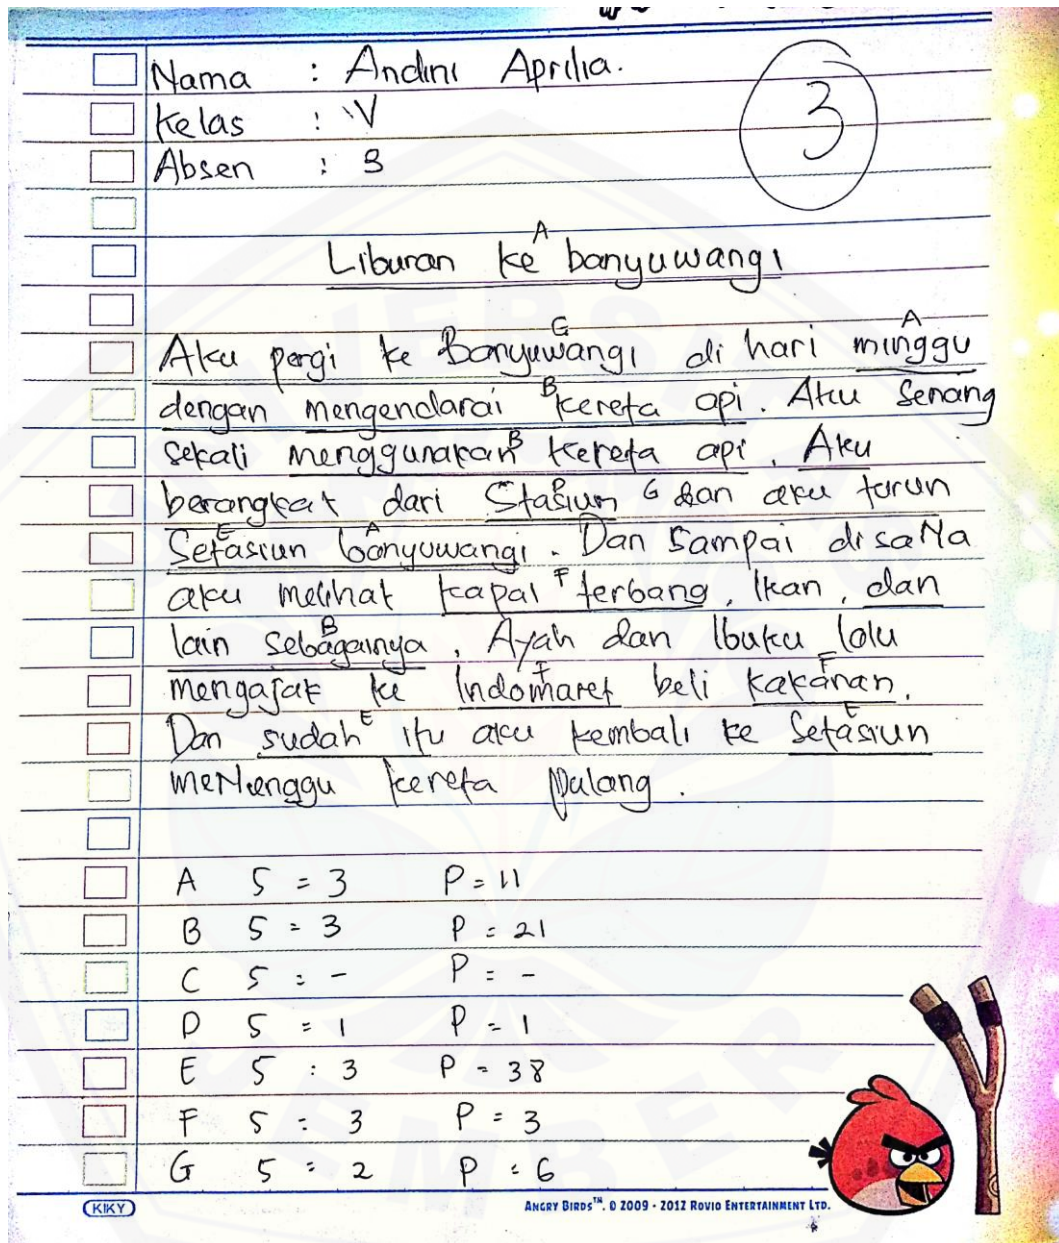 Nama : Andini Aprilia.
3
Kelas : IV
Absen : 3
A
Liburan ke banyuwangi
G A
Aku pergi ke Banyuwangi di hari minggu
B
dengan mengendarai kereta api. Aku Senang
B
sekali menggunakan kereta api. Aku
berangkat dari Stasiun G dan aku turun
E A
Setasiun banyuwangi. Dan Sampai disaNa
F
aku melihat kapal terbang, Ikan, dan
B
lain sebagainya, Ayah dan Ibuku lalu
F F
mengajak ke Indomaret beli kakanan.
E E
Dan sudah itu aku kembali ke Setasiun
meNunggu kereta Pulang.
A 5 = 3 P = 11
B 5 = 3 P = 21
C 5 = - P = -
D 5 = 1 P = 1
E 5 : 3 P = 38
F 5 = 3 P = 3
G 5 = 2 P = 6
KIKY
ANGRY BIRDS™. © 2009 - 2012 ROVIO ENTERTAINMENT LTD.